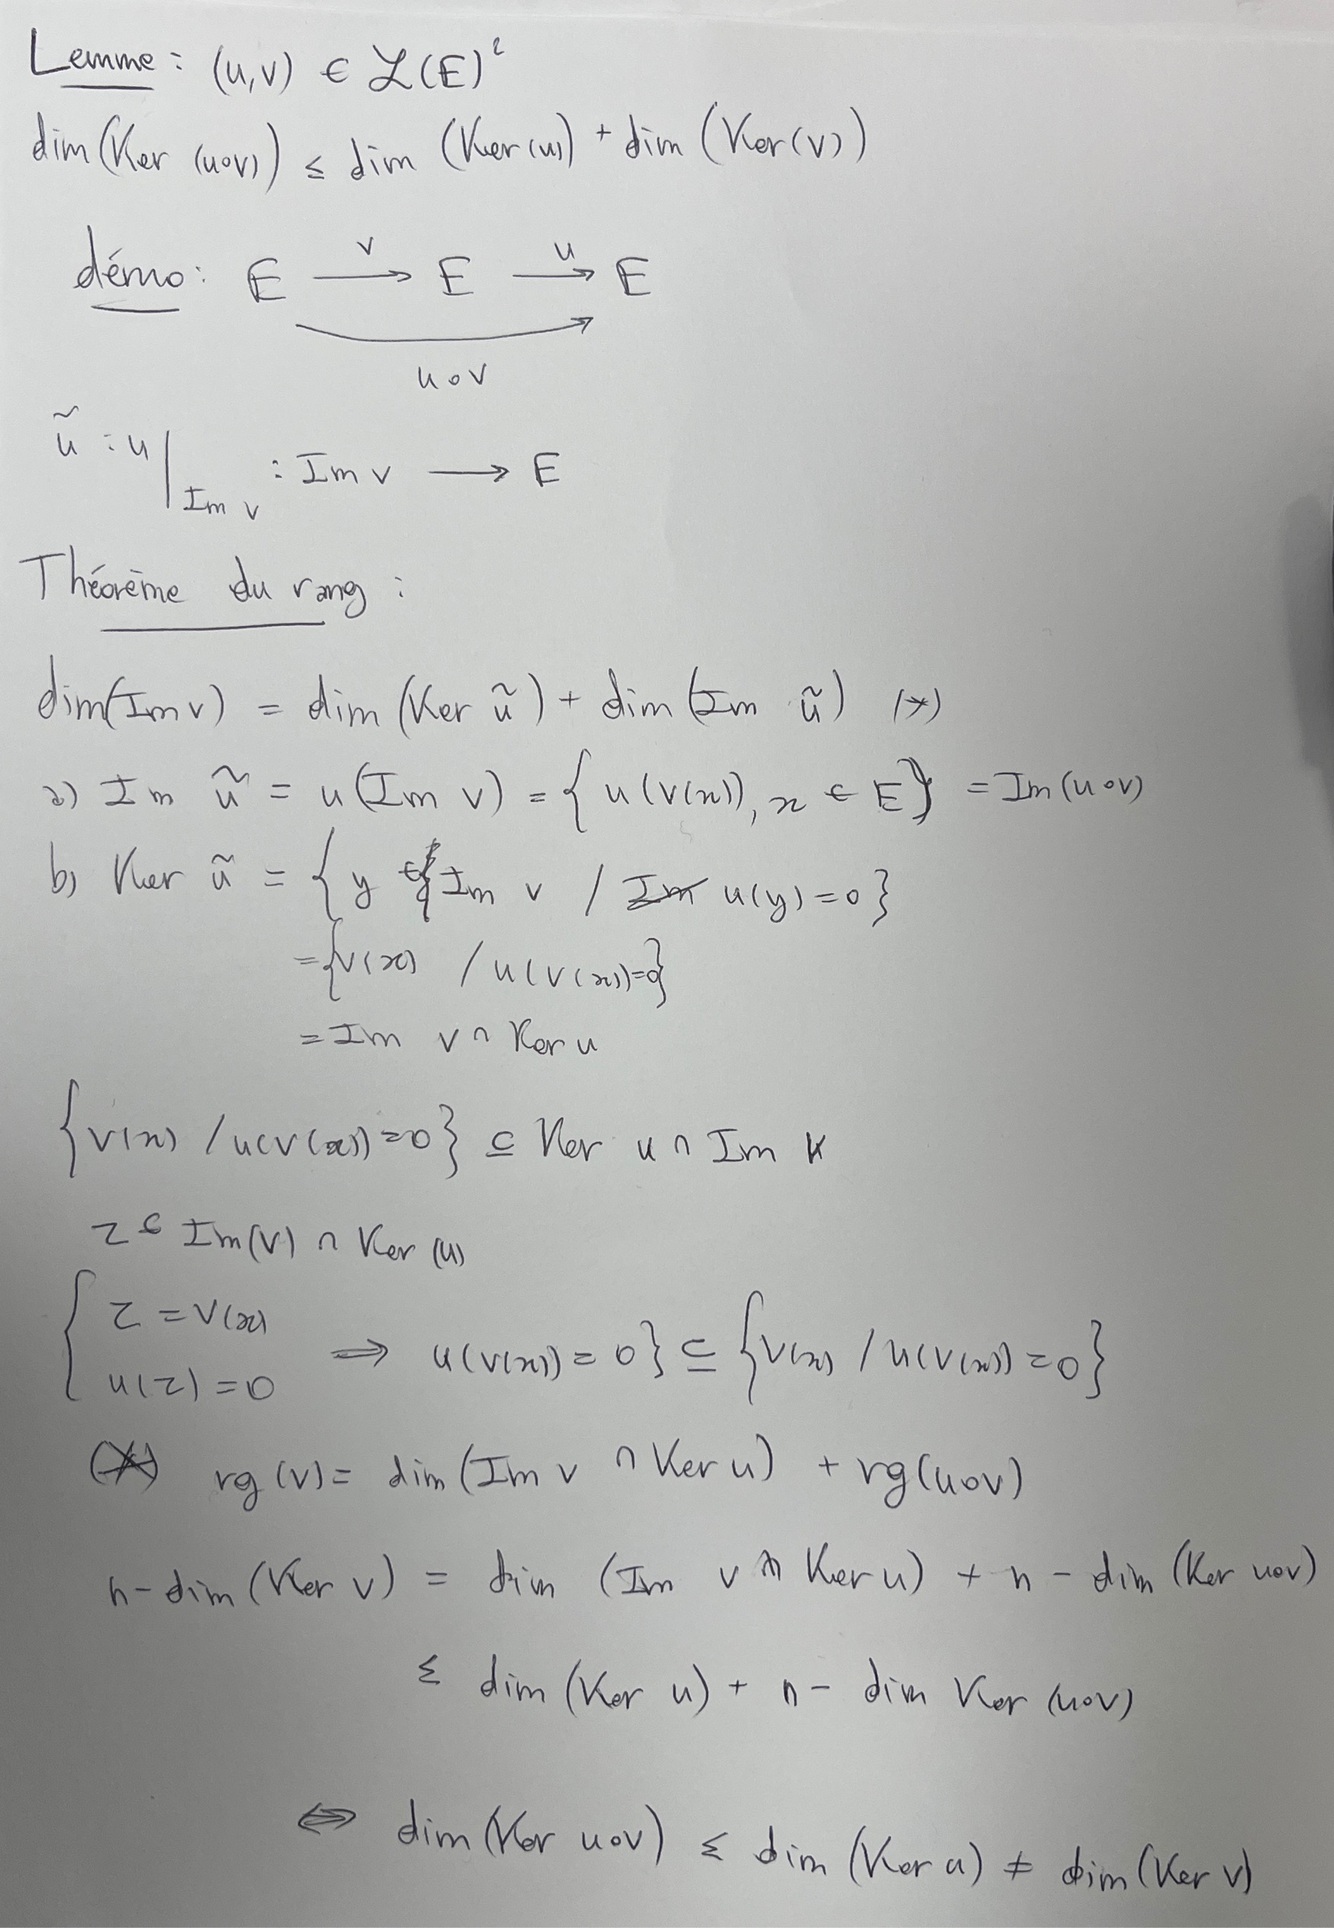 Lemme : (u,v) ∈ ℒ(E)²
dim(Ker (u∘v)) ≤ dim (Ker(u)) + dim (Ker(v))
démo: E →^v E →^u E
u∘v
ũ : u|_{Im v} : Im v → E
Théorème du rang :
dim(Im v) = dim (Ker ũ) + dim (Im ũ) (*)
a) Im ũ = u(Im v) = { u(v(x)), x ∈ E } = Im(u∘v)
b) Ker ũ = { y ∈ Im v / u(y)=0 }
= {v(x) / u(v(x))=0}
= Im v ∩ Ker u
{v(x) / u(v(x))=0} ⊆ Ker u ∩ Im v
z ∈ Im(v) ∩ Ker (u)
{ z = v(x)
u(z) = 0 ⟹ u(v(x)) = 0} ⊆ {v(x) / u(v(x)) = 0}
(*) rg (v) = dim (Im v ∩ Ker u) + rg(u∘v)
n - dim (Ker v) = dim (Im v ∩ Ker u) + n - dim (Ker u∘v)
≤ dim (Ker u) + n - dim Ker (u∘v)
⟺ dim (Ker u∘v) ≤ dim (Ker u) + dim (Ker v)